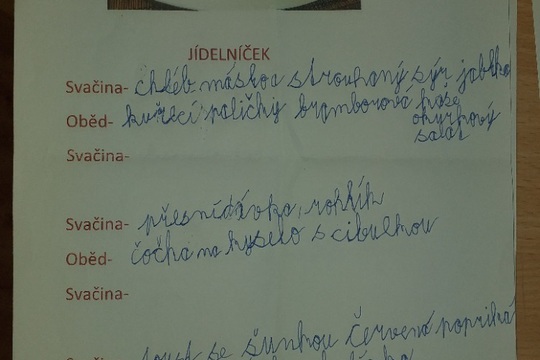 JÍDELNÍČEK
Svačina- chléb máskoa strouhaný sýr jablko
Oběd- kuřecí paličky bramborová kaše
okurkový
salát
Svačina-
Svačina- přesnídávka, rohlík
Oběd- čočka na kyselo s cibulkou
Svačina-
toust se šunkou červená paprika